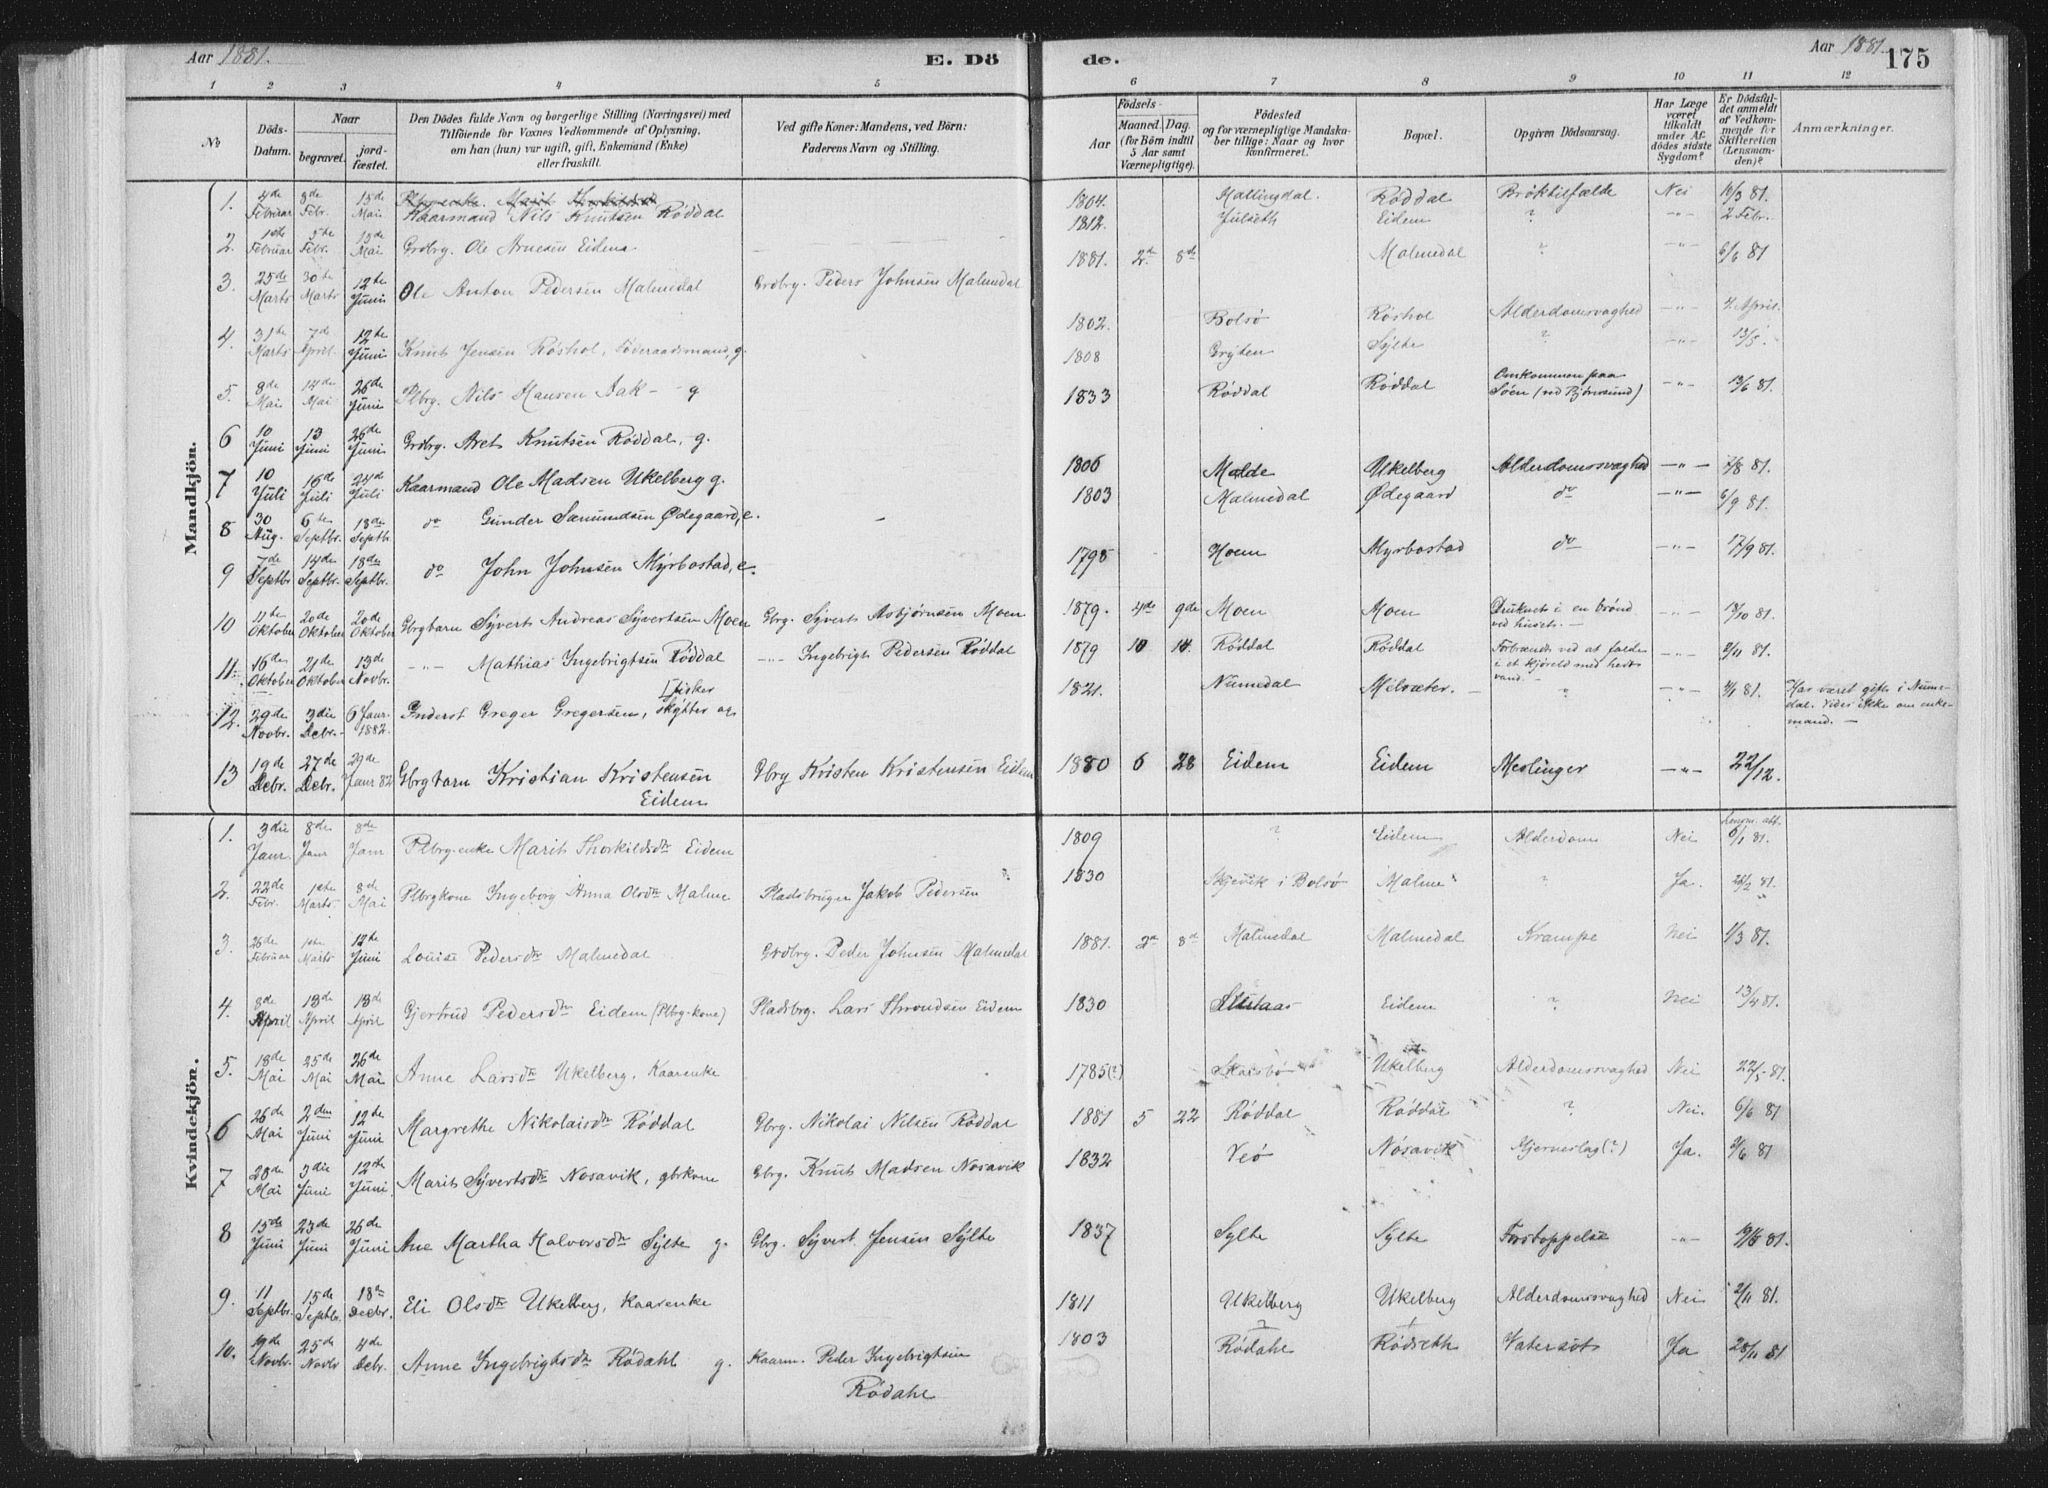 Aar 1881.
E. Dö
de.
Aar 1881.
175
1 2 3 4 5 6 7 8 9 10 11 12
No
Döds-Datum.
Naar
begravet.
jord-fæstet.
Den Dödes fulde Navn og borgerlige Stilling (Næringsvei) med
Tilföiende for Voxnes Vedkommende af Oplysning,
om han (hun) var ugift, gift, Enkemand (Enke)
eller fraskilt.
Ved gifte Koner: Mandens, ved Börn:
Faderens Navn og Stilling.
Födsels-
Aar
Maaned. Dag.
(for Börn indtil
5 Aar samt
Værnepligtige).
Födested
og for værnepligtige Mandskaber tillige: Naar og hvor
konfirmeret.
Bopæl.
Opgiven Dödsaarsag.
Har Læge
været
tilkaldt
under Afdödes sidste
Sygdom?
Er Dödsfaldet anmeldt
af Vedkommende for
Skifteretten
(Lensmanden)?
Anmærkninger.
Mandkjön.
1. 4de Februar 8de Febr. 15de Mai Plbrgenke. Marit Thorkildsd Kaarmand Nils Knutsen Røddal 1804. Hallingdal. Røddal Brøktilfælde Nei 10/3 81.
2. 1ste Februar 5te Febr. 15de Mai Grdbrg. Ole Arnesen Eidem 1812. Julseth Eidem ? -"- 2 Febr.
3. 25de Marts 30te Marts 12te Juni Ole Anton Pedersen Malmedal Grdbrg. Peder Johnsen Malmedal 1881. 2de 8de Malmedal ? -"- 6/6 81
4. 31te Marts 7de April. 12te Juni Knut Jensen Røshol, Føderaadsmand, g. 1802. Bolsø Røshol Alderdomsvaghed -"- 4 April.
5. 8de Mai 14de Mai 26de Juni Plbrg. Nils Hansen Aak - g 1808 Gryten Sylte ? -"- 13/5.
6 10 Juni 13 Juni 26de Juni Grdbrg. Aret Knutsen Røddal, g. 1833 Røddal Røddal Omkommen paa Søen (ved Bjørnsund) -"- 13/6 81.
7 10 Juli 16de Juli 24de Juli Kaarmand Ole Madsen Ukelberg g. 1806 Molde Ukelberg Alderdomssvaghed -"- 2/8 81.
8 30 Aug. 6te Septbr. 18de Septb. do Gunder Sæmundsen Ødegaard, e. - 1803 Malmedal Ødegaard do -"- 6/9 81.
9 7de Septbr 14de Septbr. 18de Septbr. do John Johnsen Myrbostad, e. 1795 Hoem Myrbostad do -"- 17/9 81.
10 11te Oktober 20de Oktober 20de Oktober Gbrgbarn Syvert Andreas Syvertsen Moen Gbrg. Syvert Asbjørnsen Moen 1879. 4de 9de Moen Moen Druknet i en brønd ved huset. - -"- 18/10 81.
11. 16de Oktober 21de Oktober 13de Novbr. -"- Mathias Ingebrigtsen Røddal -"- Ingebrigt Pedersen Røddal 1879 10 14. Røddal Røddal Forbrændt ved at falde i et kjøreld med hedt vand. - -"- 2/11 81.
12. 29de Novbr. 3die Debr. 6 Janr. 1882. Inderst Greger Gregersen, Skytter og Fisker 1821. Numedal Milsæter. - " -"- 4/1 81. Har været gift i Numedal. Vides ikke om enkemand. -
13 19de Debr. 27de Debr. 29de Janr 82 Gbrgbarn Kristian Kristensen Eidem Gbrg Kristen Kristensen Eidem 1880 6 28 Eidem Eidem Meslinger -"- 22/12.
Kvindekjön.
1. 3die Janr. 8de Janr 8de Janr Plbrg-enke Marit Thorkildsdtr Eidem 1809 ? Eidem Alderdom Nei Lensm. att. 6/1 81.
2. 22de Febr. 1ste Marts 8de Mai Plbrgkone Ingeborg Anna Olsdtr Malme Pladsbruger Jakob Pedersen 1830 Skjevik i Bolsø Malme " Ja. 28/2 81.
3. 26de Februar 1ste Marts 12te Juni Louise Pedersdtr Malmedal Grdbrg. Peder Johnsen Malmedal 1881. 2de 8de Malmedal Malmedal Krampe Nei 1/3 81.
4. 8de April 13de April 13de April Gjertrud Pedersdtr Eidem (Plbrg-kone) Pladsbrg. Lars Throndsen Eidem 1830 Eidem ? Nei 13/4 81.
5. 18de Mai 25de Mai 26de Mai Anne Larsdtr Ukelberg, Kaarenke 1785(?) Skarsbø Ukelberg Alderdomssvaghed Nei 22/5 81
6 26de Mai 2den Juni 12te Juni Margrethe Nikolaisdtr Røddal Gbrg. Nikolai Nilsen Røddal 1881 5 22 Røddal Røddal ? Nei. 6/6 81
7 28de Mai 3die Juni 12te Juni. Marit Syvertsdtr Nosavik, gbrkone Gbrg. Knut Madsen Nosavik 1832 Veø Nosavik Hjerneslag(?) Ja. 2/6 81
8 15de Juni 23de Juni 26de Juni Ane Martha Halvorsdtr Sylte g. Gbrg. Syvert Jensen Sylte 1837 Sylte Sylte Forstoppelse -"- 19/8 81.
9. 11 Septbr. 15de Septbr. 18de Decbr. Eli Olsdtr Ukelberg, Kaarenke 1811 Ukelberg Ukelberg Alderdomssvaghed Nei 2/11 81.
10. 19de Novbr. 25de Novbr 4de Debr. Anne Ingebrigtsdtr Rødahl g. Kaarm. Peder Ingebrigtsen Rødahl 1803 ? Rødahl Rødseth Vatersot Ja 28/11 81